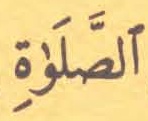 ٱلصَّلَوٰةِ